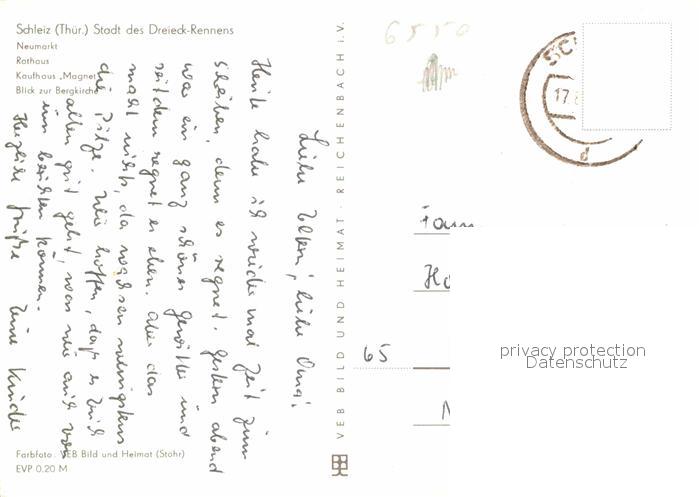 Schleiz (Thür.) Stadt des Dreieck-Rennens
Neumarkt
Rathaus
Kaufhaus „Magnet"
Blick zur Bergkirche
Liebe Eltern, liebe Oma!
Heute habe ich wieder mal Zeit zum
schreiben, denn es regnet. Gestern abend
war ein ganz schönes Gewitter und
seitdem regnet es eben. Aber das
macht nichts, da wachsen wenigstens
die Pilze. Wir hoffen, daß es Euch
allen gut geht, was wir auch von
uns berichten können.
Herzliche Grüße Eure Kinder
Farbfoto: VEB Bild und Heimat (Stöhr)
EVP 0,20 M
VEB BILD UND HEIMAT · REICHENBACH I. V.
6550
SC
17.
d
Fam
Ho
65
privacy protection
Datenschutz